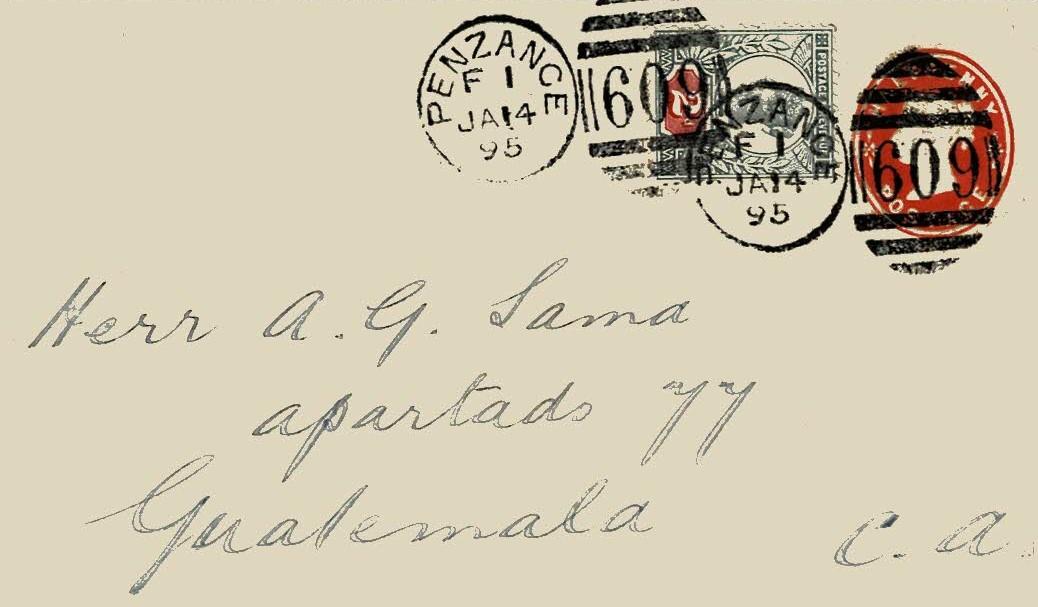 PENZANCE
F 1
JA 14
95
609
2
POSTAGE
PENZANCE
F 1
JA 14
95
609
Herr A. G. Sama
apartado 77
Guatemala
C. A.